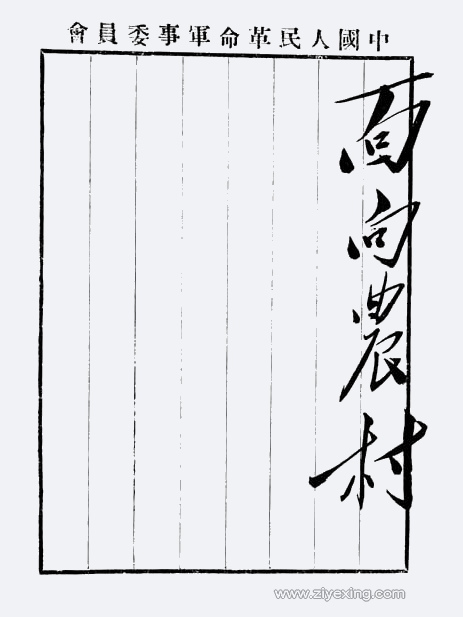 中國人民革命軍事委員會
面向農村
www.ziyexing.com